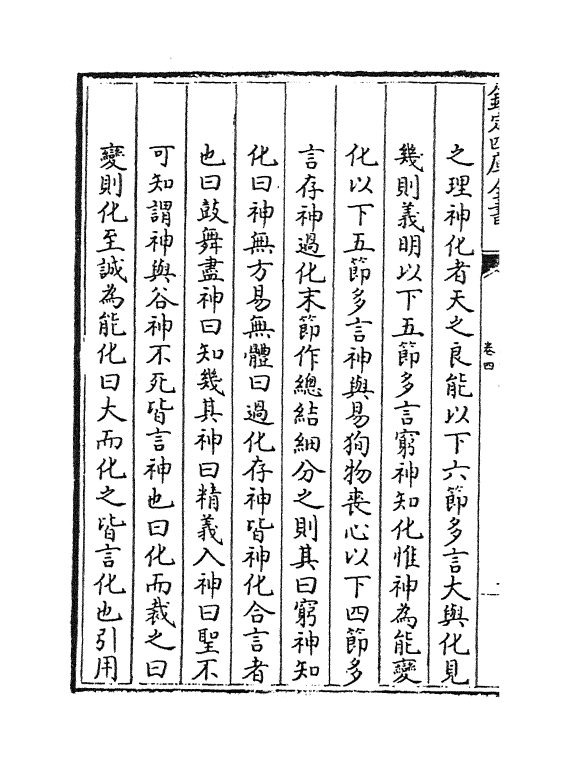 欽定四庫全書
卷四
之理神化者天之良能以下六節多言大與化見
幾則義明以下五節多言窮神知化惟神為能變
化以下五節多言神與易狥物喪心以下四節多
言存神過化末節作總結細分之則其曰窮神知
化曰神無方易無體曰過化存神皆神化合言者
也曰鼓舞盡神曰知幾其神曰精義入神曰聖不
可知謂神與谷神不死皆言神也曰化而裁之曰
變則化至誠為能化曰大而化之皆言化也引用